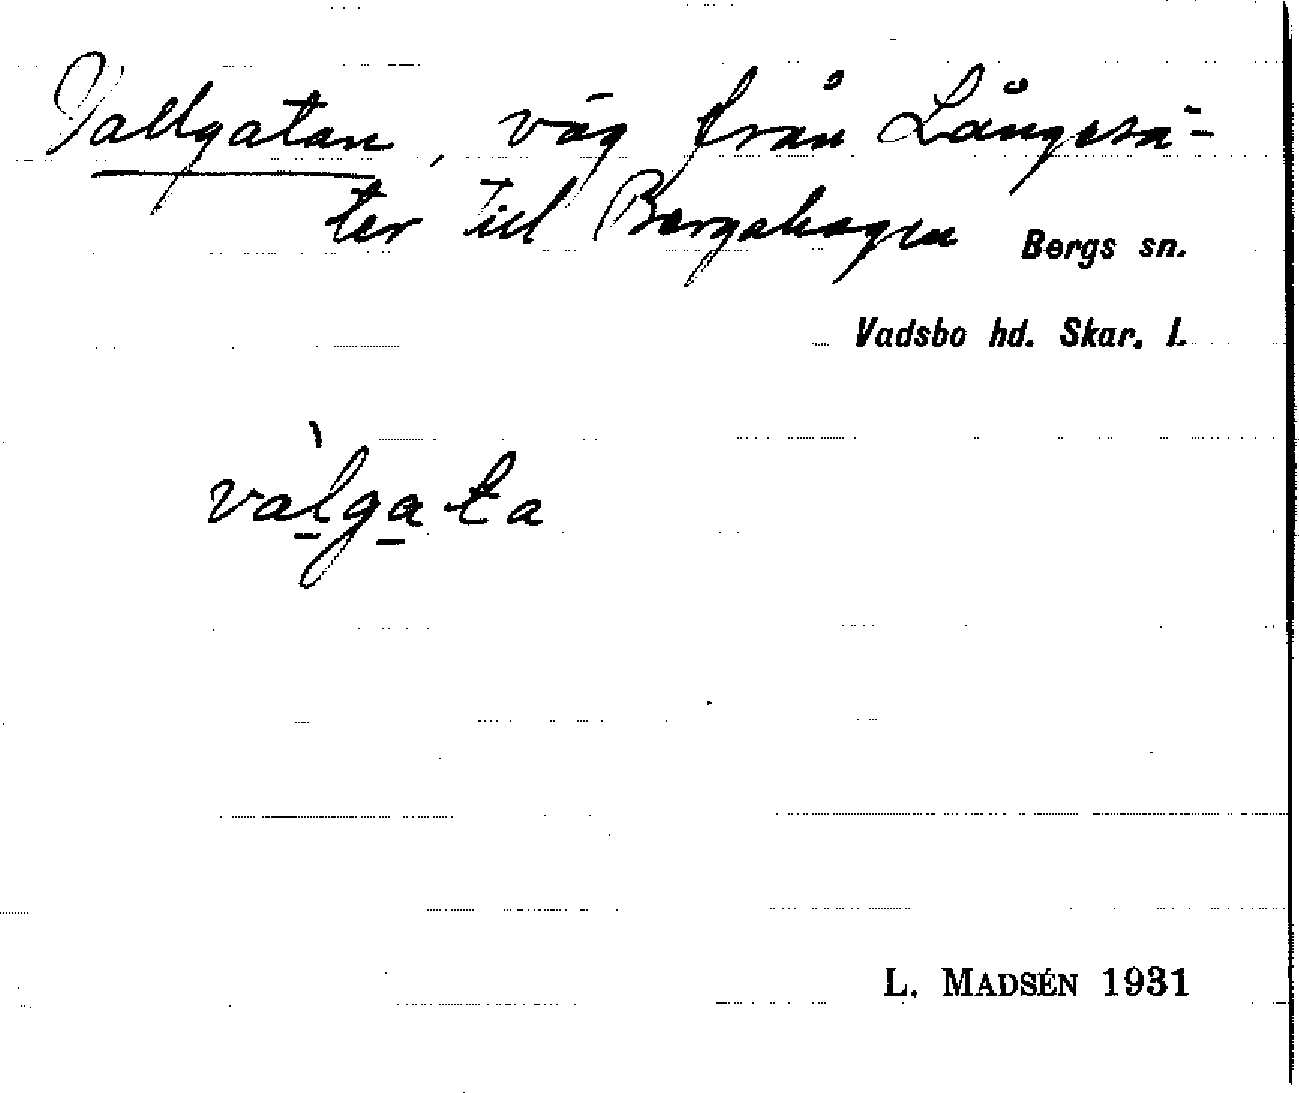 Vallgatan, väg från Långesä-
ter till Bergshagen
Bergs sn.
Vadsbo hd. Skar. l.
vàl̠ga̠ta
L. MADSÉN 1931